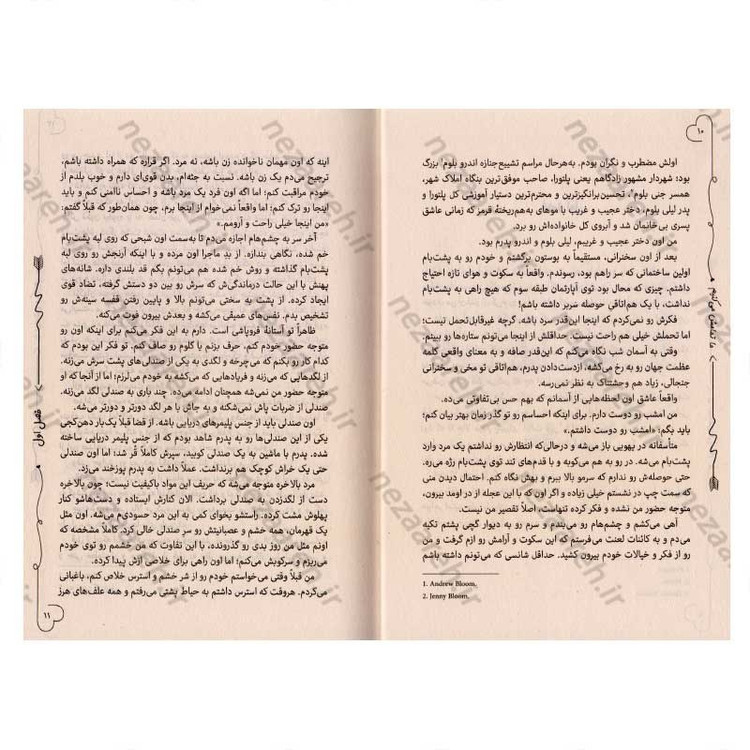 ۱۰
ما تمامش می‌کنیم
اولش مضطرب و نگران بودم. به‌هرحال مراسم تشییع‌جنازه اندرو بلوم¹ بزرگ
بود؛ شهردار مشهور زادگاهم یعنی پلتورا، صاحب موفق‌ترین بنگاه املاک شهر،
همسر جنی بلوم²، تحسین‌برانگیزترین و محترم‌ترین دستیار آموزشی کل پلتورا و
پدر لیلی بلوم، دختر عجیب و غریب با موهای به‌هم‌ریختهٔ قرمز که زمانی عاشق
پسری بی‌خانمان شد و آبروی کل خانواده‌اش رو برد.
من اون دختر عجیب و غریبم، لیلی بلوم و اندرو پدرم بود.
بعد از اون سخنرانی، مستقیماً به بوستون برگشتم و خودم رو به پشت‌بام
اولین ساختمانی که سر راهم بود، رسوندم. واقعاً به سکوت و هوای تازه احتیاج
داشتم. چیزی که محال بود توی آپارتمان طبقه سوم که هیچ راهی به پشت‌بام
نداشت، با یک هم‌اتاقی حوصله سربر داشته باشم!
فکرش رو نمی‌کردم که اینجا این‌قدر سرد باشه. گرچه غیرقابل‌تحمل نیست؛
اما تحملش خیلی هم راحت نیست. حداقلش از اینجا می‌تونم ستاره‌ها رو ببینم.
وقتی به آسمان شب نگاه می‌کنم که این‌قدر صافه و به معنای واقعی کلمه
عظمت جهان رو به رخ می‌کشه، ازدست‌دادن پدرم، هم‌اتاقی تو مخی و سخنرانی
جنجالی، زیاد هم وحشتناک به نظر نمی‌رسه.
واقعاً عاشق اون لحظه‌هایی از آسمانم که بهم حس بی‌تفاوتی می‌ده.
من امشب رو دوست دارم. برای اینکه احساسم رو تو گذر زمان بهتر بیان کنم؛
باید بگم: «امشب رو دوست داشتم.»
متأسفانه در یهویی باز می‌شه و درحالی‌که انتظارش رو نداشتم یک مرد وارد
پشت‌بام می‌شه. در رو به هم می‌کوبه و با قدم‌های تند توی پشت‌بام رژه می‌ره.
حتی حوصله‌ش رو ندارم که سرمو بالا ببرم و بهش نگاه کنم. احتمال دیدن منی
که سمت چپ در نشستم خیلی زیاده و اگر اون که با این عجله از در اومد بیرون،
متوجه حضور من نشده و فکر کرده تنهاست، اصلاً تقصیر من نیست.
آهی می‌کشم و چشم‌هام رو می‌بندم و سرم رو به دیوار گچی پشتم تکیه
می‌دم و به کائنات لعنت می‌فرستم که این سکوت و آرامش رو ازم گرفت و من
رو از فکر و خیالات خودم بیرون کشید. حداقل شانسی که می‌تونم داشته باشم
1. Andrew Bloom.
2. Jenny Bloom.
اینه که اون مهمان ناخوانده زن باشه، نه مرد. اگر قراره که همراه داشته باشم،
ترجیح می‌دم یک زن باشه. نسبت به جثه‌ام، بدن قوی‌ای دارم و خوب بلدم از
خودم مراقبت کنم؛ اما اگه اون فرد یک مرد باشه و احساس ناامنی کنم و باید
اینجا رو ترک کنم؛ اما واقعاً نمی‌خوام از اینجا برم، چون همان‌طور که قبلاً گفتم:
«من اینجا خیلی راحت و آرومم.»
آخر سر به چشم‌هام اجازه می‌دم تا به‌سمت اون شبحی که روی لبه پشت‌بام
خم شده، نگاهی بندازه. از بد ماجرا اون مرده و با اینکه آرنجش رو روی لبه
پشت‌بام گذاشته و روش خم شده هم می‌تونم بگم قد بلندی داره. شانه‌های
پهنش با این حالت درماندگی‌ش که سرش رو بین دو دستش گرفته، تضاد قوی
ایجاد کرده. از پشت به سختی می‌تونم بالا و پایین رفتن قفسه سینه‌ش رو
تشخیص بدم. نفس‌های عمیقی می‌کشه و بعدش بیرون فوت می‌کنه.
ظاهراً تو آستانهٔ فروپاشی است. دارم به این فکر می‌کنم برای اینکه اون رو
متوجه حضور خودم کنم، حرف بزنم یا گلوم رو صاف کنم. تو فکر این بودم که
کدام کار رو بکنم که می‌چرخه و لگدی به یکی از صندلی‌های پشت سرش می‌زنه.
از لگدهایی که می‌زنه و فریادهایی که می‌کشه به خودم می‌لرزم؛ اما از آنجا که او
متوجه حضور من نمی‌شه همچنان ادامه می‌ده. چند باری به صندلی لگد می‌زنه.
صندلی از ضربات پاش نمی‌شکنه و به جاش با هر لگد دورتر و دورتر می‌شه.
اون صندلی باید از جنس پلیمرهای دریایی باشه. از قضا قبلاً یک‌بار دهن‌کجی
یکی از این صندلی‌ها رو به پدرم شاهد بودم که از جنس پلیمر دریایی ساخته
شده. پدرم با ماشین به یک صندلی کوبید، سپرش کاملاً قُر شد؛ اما اون صندلی
حتی یک خراش کوچک هم برنداشت. عملاً داشت به پدرم پوزخند می‌زد.
مرد بالاخره متوجه می‌شه که حریف این مواد باکیفیت نیست؛ چون بالاخره
دست از لگدزدن به صندلی برداشت. الان کنارش ایستاده و دست‌هاشو کنار
پهلوش مشت کرده. راستشو بخوای کمی به این مرد حسودی‌م می‌شه. اون مثل
یک قهرمان، همه خشم و عصبانیتش رو سر صندلی خالی کرد. کاملاً مشخصه که
اونم مثل من روز بدی رو گذرونده، با این تفاوت که من خشمم رو توی خودم
می‌ریزم و سرکوبش می‌کنم؛ اما اون راهی برای خلاصی ازش پیدا کرده.
من قبلاً وقتی می‌خواستم خودم رو از شر خشم و استرس خلاص کنم، باغبانی
می‌کردم. هروقت که استرس داشتم به حیاط پشتی می‌رفتم و همه علف‌های هرز
فصل اول
۱۱
nezaareh.ir